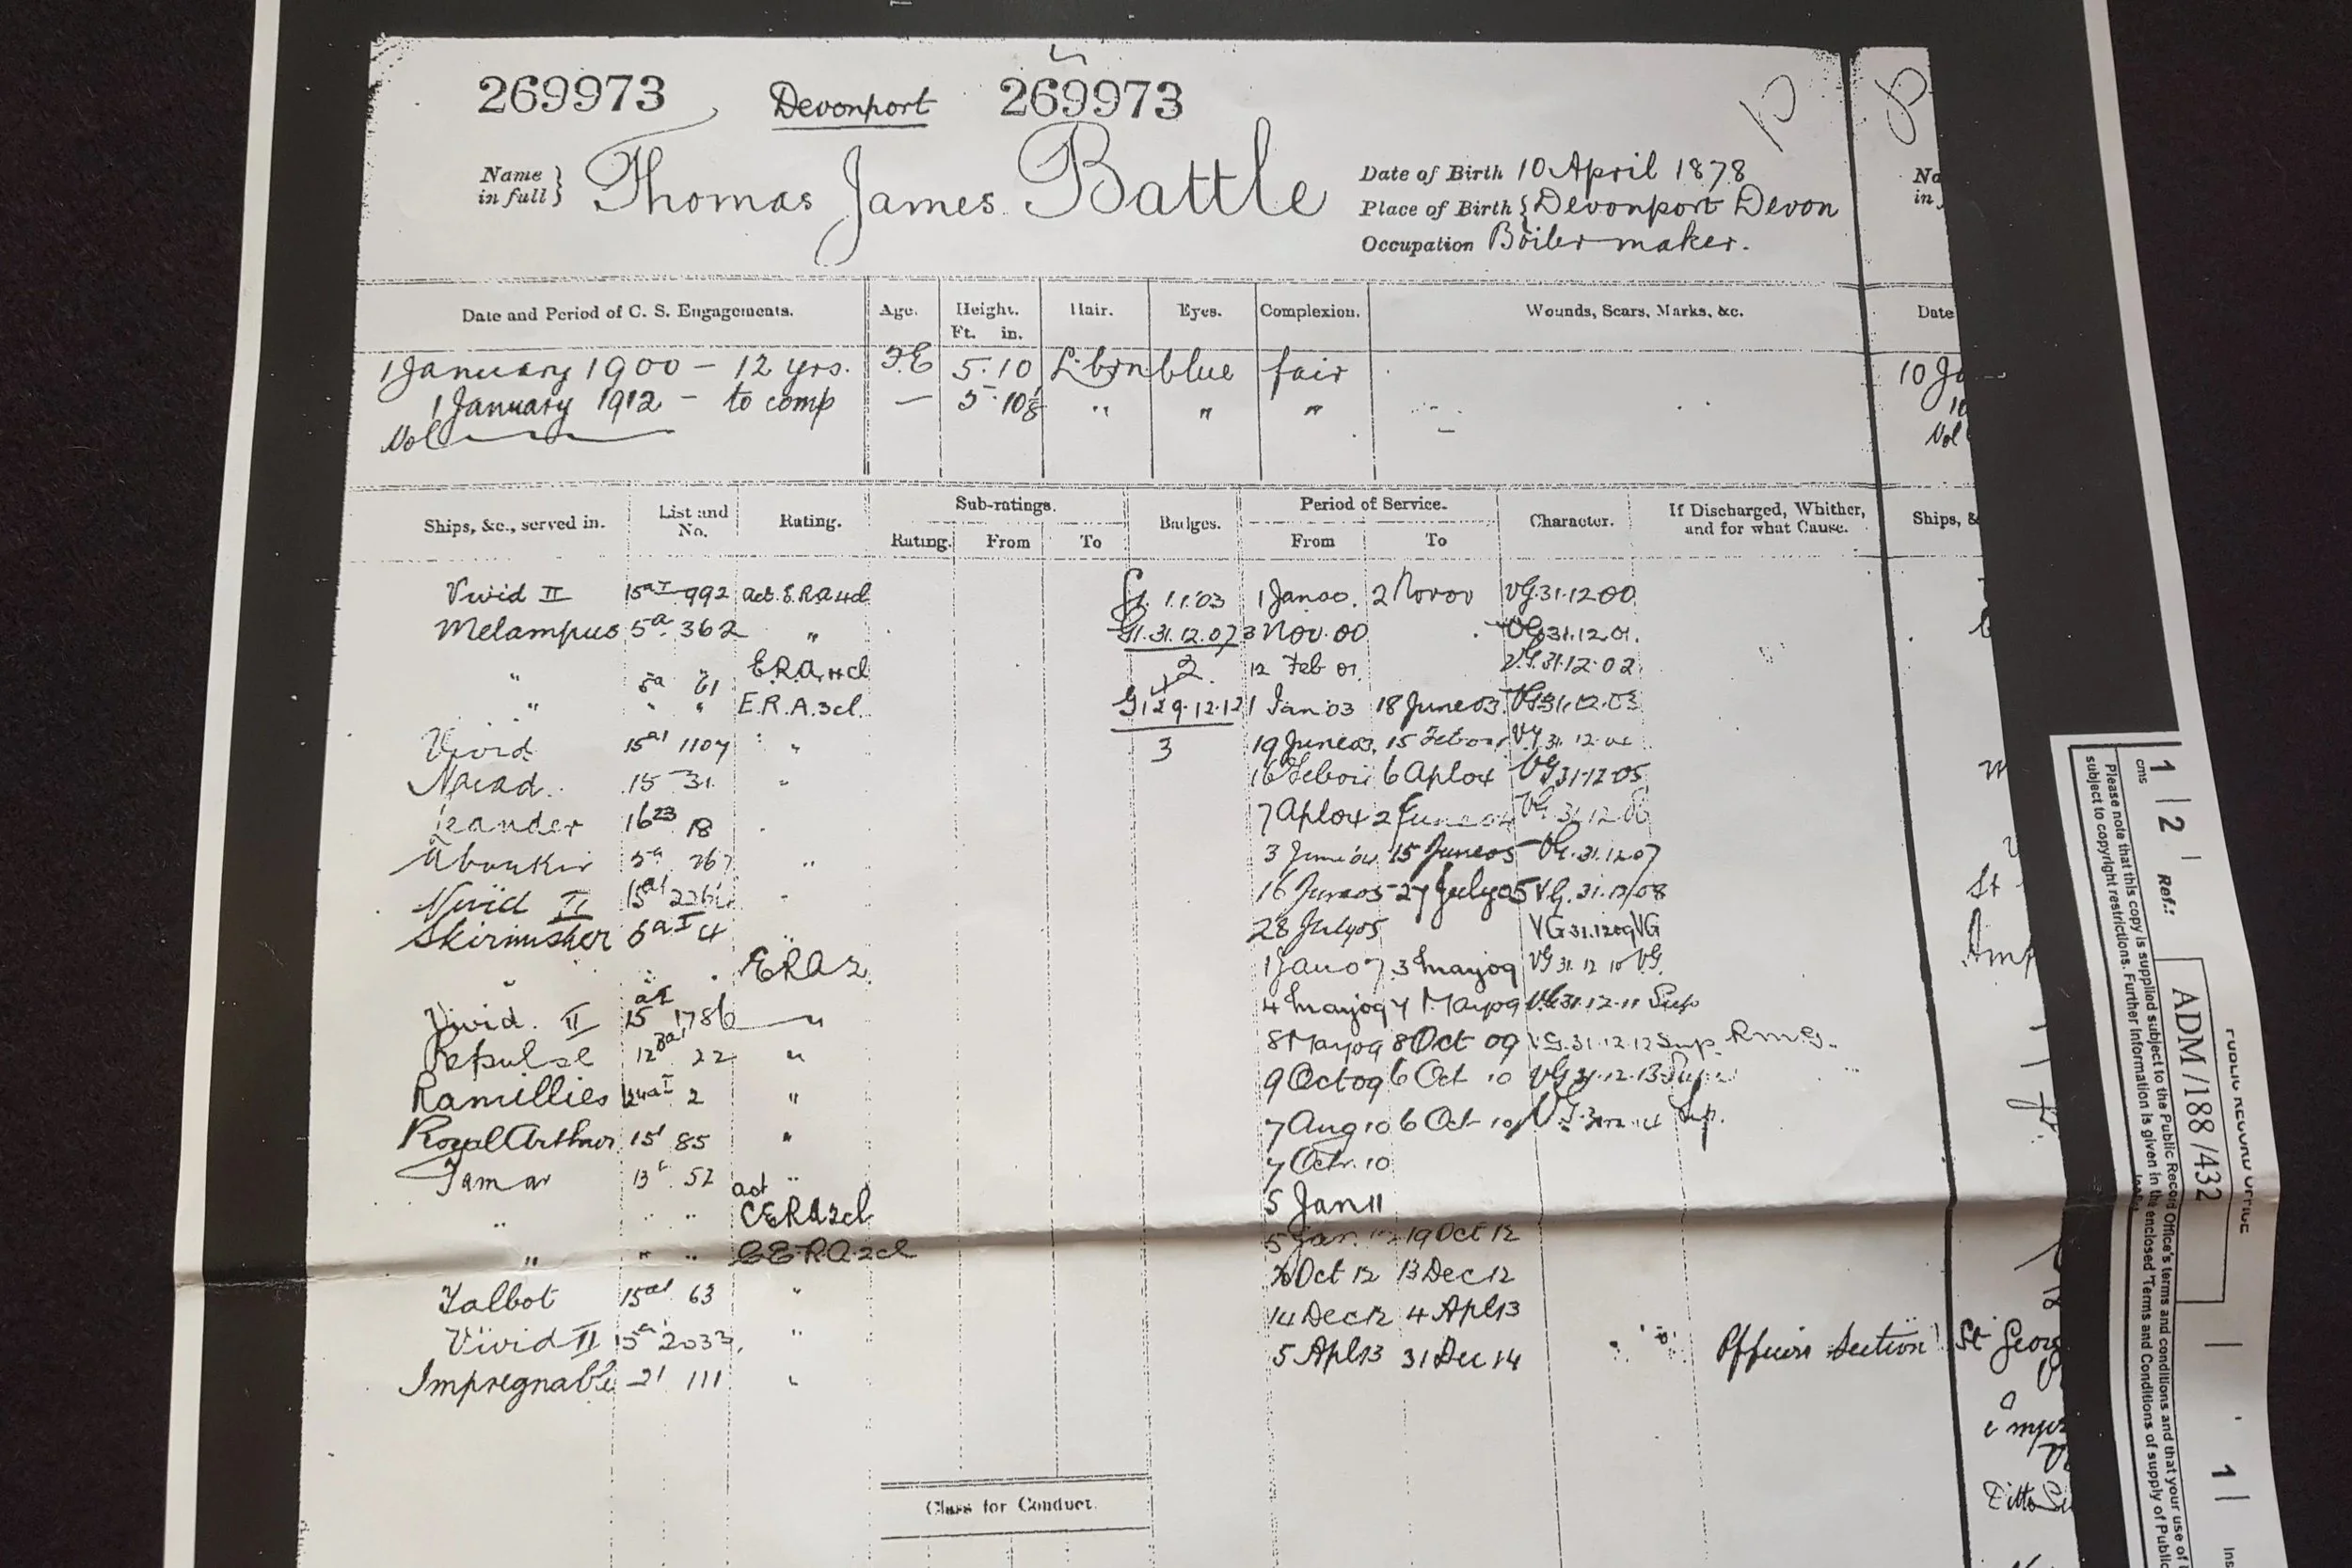 269973 Devonport 269973
Name in full } Thomas James Battle
Date of Birth 10 April 1878
Place of Birth { Devonport Devon
Occupation Boilermaker.
Date and Period of C. S. Engagements. Age. Height. Ft. in. Hair. Eyes. Complexion. Wounds, Scars, Marks, &c. Date
1 January 1900 - 12 yrs. 5.10 L. brn blue fair 10 Ja
1 January 1912 - to comp — 5 10⅛ " " "
Ships, &c., served in. List and No. Rating. Sub-ratings. Badges. Period of Service. Character. If Discharged, Whither, and for what Cause. Ships, &
Rating. From To From To
Vivid II 15aI 992 act. E.R.A 4cl 1.1.03 1 Jan 00. 2 Nov 00 VG 31.12.00
Melampus 5a 362 " G1.31.12.07 3 Nov. 00 VG 31.12.01.
" 5a 61 E.R.A. 4cl 2 12 Feb 01 VG 31.12.02
" " " E.R.A. 3cl. G1 29.12.12 1 Jan 03 18 June 03 VG 31.12.03
Vivid 15a1 1107 " 3 19 June 03. 15 Feb VG 31.12.
Naiad. 15 31 " 16 Feb 6 Apl 04 VG 31.12.05
Leander 16 23 18 7 Apl 04 2 June 04 VG 31.12.06
Aboukir 5a 267 " 3 June 04 15 June 05 VG. 31.12.07
Vivid II 15a1 " 16 June 05 27 July 05 VG. 31.12.08
Skirmisher 4 " 28 July 05 VG 31.12.09 VG
" " E.R.A 2. 1 Jan 07 3 May 09 VG 31.12.10 VG.
Vivid. II 15 1786 " 4 May 09 7 May 09 VG 31.12.11 Sup
Repulse 12 22 " 8 May 09 8 Oct 09 VG. 31.12.12 Sup. R.M.G.
Ramillies 2 " 9 Oct 09 6 Oct 10 VG 31.12.13 Sup
Royal Arthur 15 85 " 7 Aug 10 6 Oct 10 Sup.
Tamar 13 52 " 7 Octr. 10
" " " act CERA 2cl 5 Jan 11
" " " C.E.R.A. 2cl 5 Jan. 12 19 Oct 12
Talbot 15a1 63 " 20 Oct 12 13 Dec 12
Vivid II 15a 2033. " 14 Dec 12 4 Apl 13
Impregnable 21 111 " 5 Apl 13 31 Dec 14 Officers Section St Georg
Ditto
Class for Conduct.
cms 1 | 2 | Ref.: ADM/188/432
PUBLIC RECORD OFFICE
Please note that this copy is supplied subject to the Public Record Office's terms and conditions and that your use of
subject to copyright restrictions. Further information is given in the enclosed 'Terms and Conditions of supply of Public